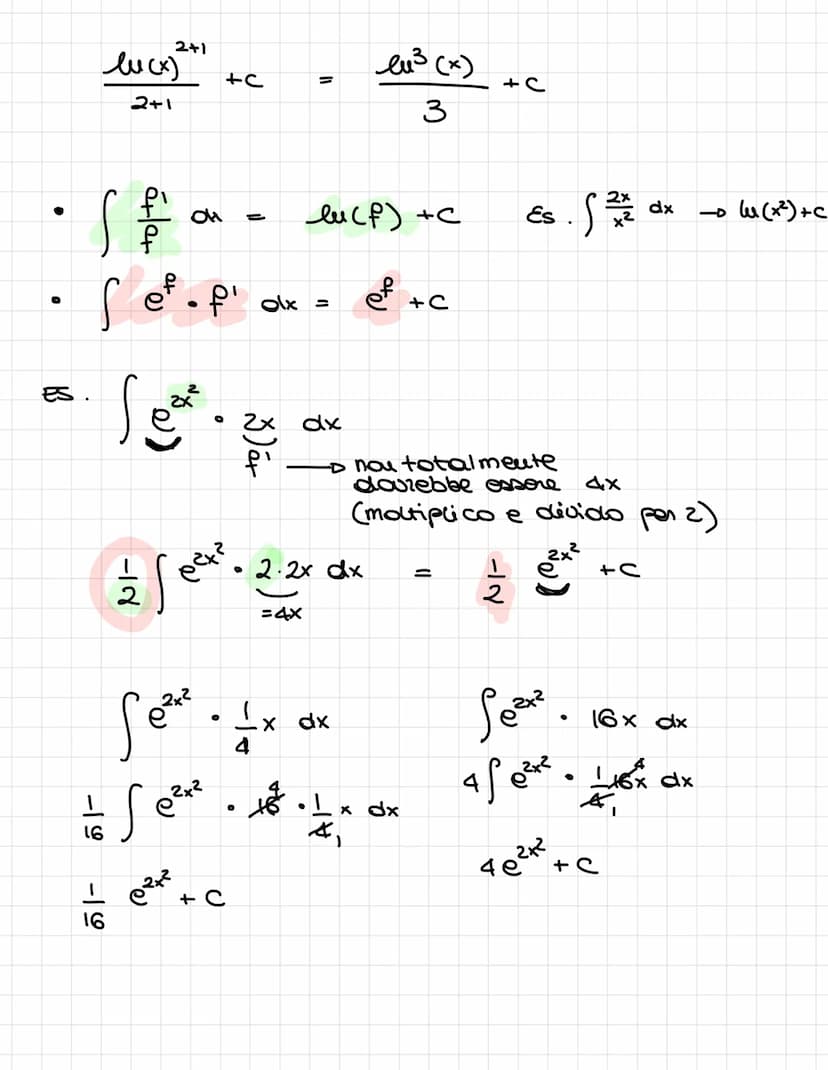 ln(x)^(2+1)/(2+1) + c = ln³(x)/3 + c
• ∫ f'/f dx = ln(f) + c Es. ∫ 2x/x² dx → ln(x²) + c
• ∫ e^f · f' dx = e^f + c
ES. ∫ e^(2x²) · 2x dx
f' → non totalmente
dovrebbe essere 4x
(moltiplico e divido per 2)
1/2 ∫ e^(2x²) · 2·2x dx = 1/2 e^(2x²) + c
=4x
∫ e^(2x²) · 1/4 x dx
1/16 ∫ e^(2x²) · 16 4 · 1/4 1 x dx
1/16 e^(2x²) + c
∫ e^(2x²) · 16x dx
4 ∫ e^(2x²) · 1/4 1 16x 4 dx
4e^(2x²) + c